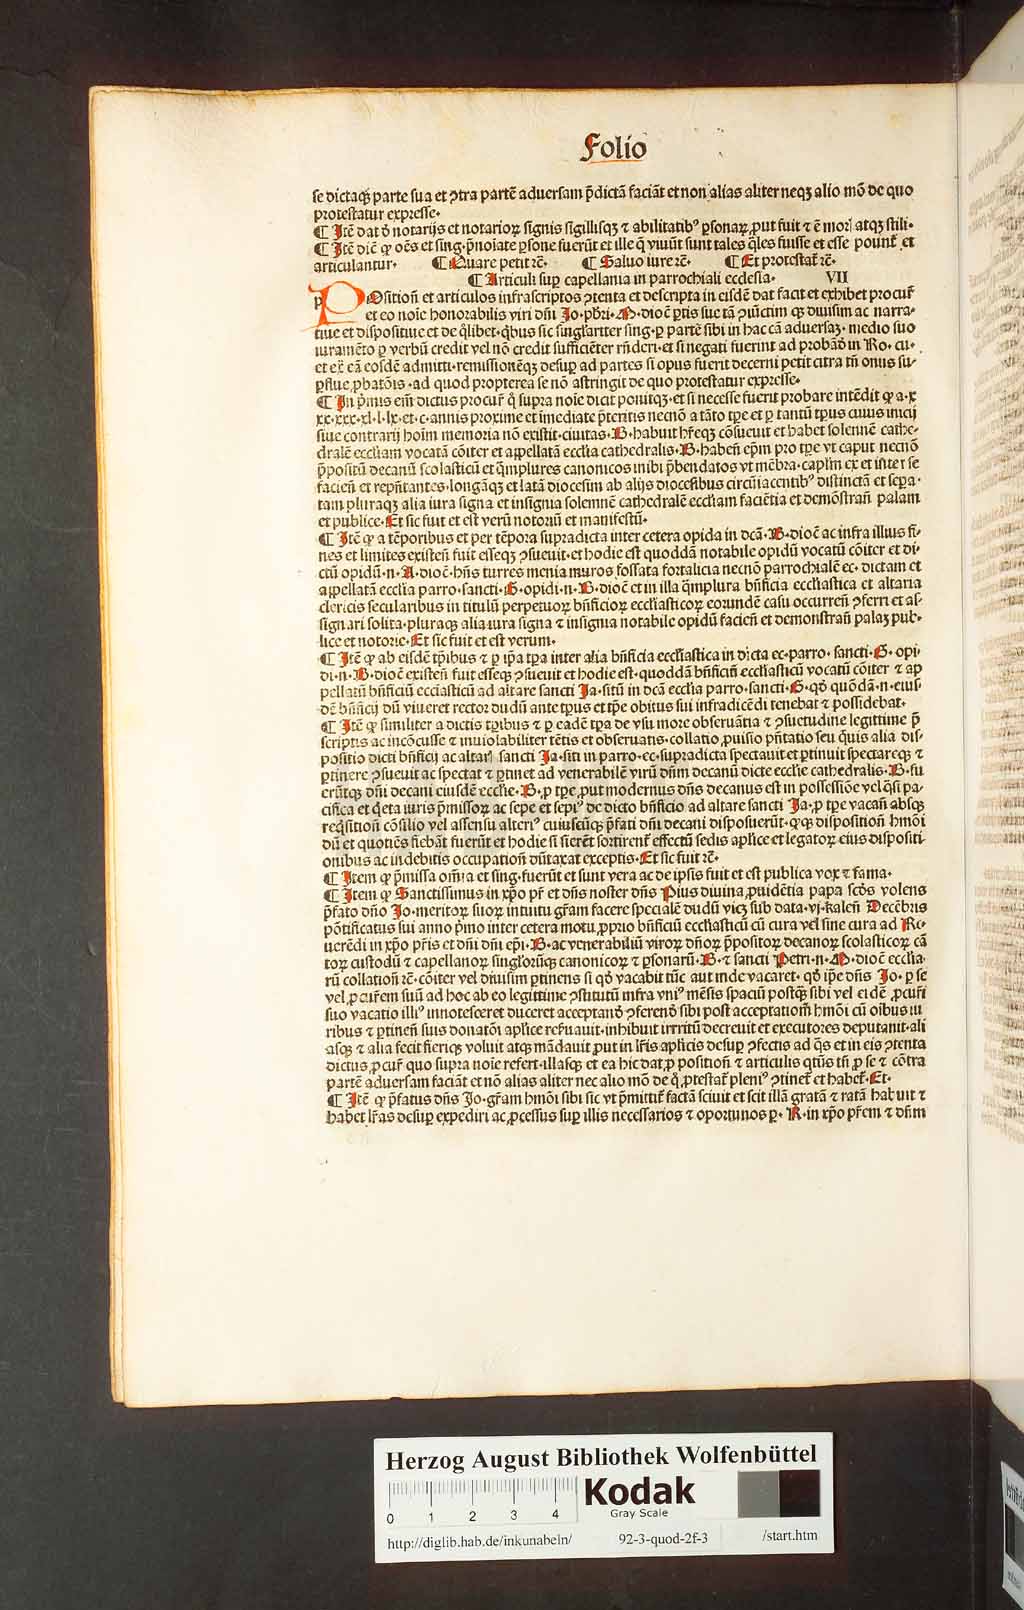 Folio
se dictaqꝫ parte sua et ꝯtra partē aduersam p̄dictā faciāt et non alias aliter neqꝫ alio mō de quo
protestatur expresse.
¶ Itē dat ꝺ notarijs et notarioꝝ signis sigillisqꝫ ⁊ abilitatibꝰ ꝑsonaꝝ ꝓut fuit ⁊ ē moꝛ atqꝫ stili.
¶ Itē dic̄ ꝙ oēs et sing. p̄noĩate ꝑsone fuerūt et ille q̄ viuūt sunt tales q̄les fuisse et esse pounť et
articulantur. ¶ Quare petit ⁊c̄. ¶ Saluo iure ⁊c̄. ¶ Et protestaƭ ⁊c̄.
¶ Articuli suꝑ capellania in parrochiali ecclesia. VII
POsitioñ et articulos infrascriptos ꝯtenta et descripta in eisdē dat facit et exhibet procur̃
et eo noĩe honorabilis viri dñi Jo. pb̄ri. M. dioc̄ ꝑtis sue tā ꝯiūctim qꝫ diuisim ac narra-
tiue et dispositiue et de q̄libet. q̄bus sic singl̃ariter sing. ꝑ partē sibi in hac cā aduersaꝫ. medio suo
iuramēto ꝑ verbū credit vel nō credit sufficiēter rñderi. et si negati fuerint ad probādꝺ in Ro. cu.
et ex̄ eā eosdē admitti. remissionēqꝫ desuꝑ ad partes si opus fuerit decerni petit citra tñ onus su-
ꝑflue ꝓbatōis. ad quod propterea se nō astringit de quo protestatur expresse.
¶ In p̄mis em̄ dictus procur̃ q̄ supra noĩe dicit ponitqꝫ. et si necesse fuerit probare intēdit ꝙ a. x
xx. xxx. xl. l. lx. et. c. annis proxime et imediate p̄teritis necnō a tāto tꝑe et ꝑ tantū tꝑus cuius inicij
siue contrarij hoĩm memoria nō existit. ciuitas. B. habuit hr̄eqꝫ cōsueuit et habet solennē cathe-
dralē eccl̃iam vocatā cōiter et appellatā eccl̃ia cathedralis. B. habeñ epm̄ pro tꝑe vt caput necnō
p̄positū decanū scolasticū et q̄mplures canonicos inibi p̄bendatos vt mēbra. capl̃m ex et inter se
facieñ et repn̄tantes. longāqꝫ et latā diocesim ab alijs diocesibus circūiacentibꝰ distinctā et seꝑa-
tam pluraqꝫ alia iura signa et insignia solemnē cathedralē eccl̃iam faciētia et demōstrañ palam
et publice. Et sic fuit et est verū notoriū et manifestū.
¶ Itē ꝙ a tēporibus et per tēpora supradicta inter cetera opida in dcā. B. dioc̄ ac infra illius fi-
nes et limites existeñ fuit esseqꝫ ꝯsueuit. et hodie est quoddā notabile opidū vocatū cōiter et di-
ctū opidū. n. A. dioc̄. hñs turres menia muros fossata fortalicia necnō parrochialē ec. dictam et
appellatā eccl̃ia parro. sancti. G. opidi. n. B. dioc̄ et in illa q̄mplura bñficia eccl̃iastica et altaria
clericis secularibus in titulū perpetuoꝝ bñficioꝝ eccl̃iasticoꝝ eorundē casu occurreñ ꝯferri et as-
signari solita. pluraqꝫ alia iura signa ⁊ insignia notabile opidū facieñ et demonstrañ palaꝫ pub-
lice et notorie. Et sic fuit et est verum.
¶ Itē ꝙ ab eisdē tꝑibus ⁊ ꝑ ip̄a tꝑa inter alia bñficia eccl̃iastica in dicta ec. parro. sancti. G. opi-
di. n. B. dioc̄ existeñ fuit esseqꝫ ꝯsueuit et hodie est. quoddā bñficiū eccl̃iasticū vocatū cōiter ⁊ ap
pellatū bñficiū eccl̃iasticū ad altare sancti Ja. sitū in dcā eccl̃ia parro. sancti. G. qꝺ quōdā. n. eius-
dē bñficij dū viueret rector dudū ante tꝑus et tꝑe obitus sui infradicēdi tenebat ⁊ possidebat.
¶ Itē ꝙ similiter a dictis tꝑibus ⁊ ꝑ eadē tꝑa de vsu more obseruātia ⁊ ꝯsuetudine legittime p̄
scriptis ac incōcusse ⁊ inuiolabiliter tētis et obseruatis. collatio ꝓuisio pn̄tatio seu q̄uis alia dis-
positio dicti bñficij ac altarꝭ sancti Ja. siti in parro. ec. supradicta spectauit et ꝑtinuit spectareqꝫ ⁊
ꝑtinere ꝯsueuit ac spectat ⁊ ꝑtinet ad venerabilē virū dñm decanū dicte eccl̃ie cathedralis. B. fu
erūtqꝫ dñi decani eiusdē eccl̃ie. B. ꝓ tꝑe ꝓut modernus dñs decanus est in possessiōe vel q̄si pa-
cifica et q̄eta iuris p̄missoꝝ ac sepe et sepiꝰ de dicto bñficio ad altare sancti Ja. ꝓ tꝑe vacañ absqꝫ
req̄sitioñ cōsilio vel assensu alteriꝰ cuiuscūqꝫ p̄fati dñi decani disposuerūt. qꝫqꝫ dispositioñ hmōi
dū et quotiēs fiebāt fuerūt et hodie si fierēt sortirenť effectū sedis apl̃ice et legatoꝝ eius dispositi-
onibus ac indebitis occupatioñ dūtaxat exceptis. Et sic fuit ⁊c̄.
¶ Item ꝙ p̄missa om̄ia et sing. fuerūt et sunt vera ac de ipsis fuit et est publica vox ⁊ fama.
¶ Item ꝙ Sanctissimus in xp̄o pr̄ et dñs noster dñs Pius diuina ꝓuidētia papa scꝺs volens
p̄fato dño Jo. meritoꝝ suoꝝ intuitu gr̄am facere specialē dudū vicꝫ sub data. vj. kaleñ Decēbris
pōtificatus sui anno p̄mo inter cetera motu ꝓprio bñficiū eccl̃iasticū cū cura vel sine cura ad Re-
uerēdi in xp̄o pr̄is et dñi dñi ep̄i. B. ac venerabiliū viroꝝ dñoꝝ p̄positoꝝ decanoꝝ scolasticoꝝ cā
toꝝ custodū ⁊ capellanoꝝ singl̃oꝝqꝫ canonicoꝝ ⁊ ꝑsonarū. B. ⁊ sancti Petri. n. M. dioc̄ eccl̃ia-
rū collationē ⁊c̄. cōiter vel diuisim ꝑtinens si qꝺ vacabit tūc aut inde vacaret. qꝺ ip̄e dñs Jo. ꝑ se
vel ꝓcur̃em suū ad hoc ab eo legittime ꝯstitutū infra vniꝰ mēsis spaciū postqꝫ sibi vel eidē ꝓcur̃i
suo vacatio illiꝰ innotesceret duceret acceptandꝺ ꝯferendꝺ sibi post acceptationē hmōi cū oĩbus iu
ribus ⁊ ꝑtineñ suis donatōi apl̃ice reseruauit. inhibuit irritū decreuit et executores deputauit. ali
asqꝫ ⁊ alia fecit fieriqꝫ voluit atqꝫ mādauit ꝓut in lr̄is apl̃icis desuꝑ ꝯfectis ad q̄s et in eis ꝯtenta
dictus ꝓcur̃ quo supra noĩe refert. illasqꝫ et ea hic dat ꝓ positioñ ⁊ articulis qtūs tñ ꝓ se ⁊ cōtra
partē aduersam faciāt et nō alias aliter nec alio mō de q̄ ꝓtestať pleniꝰ ꝯtineť et habeť. Et.
¶ Itē ꝙ p̄fatus dñs Jo. gr̄am hmōi sibi sic vt p̄mittiť factā sciuit et scit illā gratā ⁊ ratā habuit ⁊
habet lr̄as desuꝑ expediri ac ꝓcessus suꝑ illis necessarios ⁊ oportunos ꝑ. R. in xp̄o pr̄em ⁊ dñm
Herzog August Bibliothek Wolfenbüttel
0 1 2 3 4
Kodak
Gray Scale
http://diglib.hab.de/inkunabeln/ 92-3-quod-2f-3 /start.htm